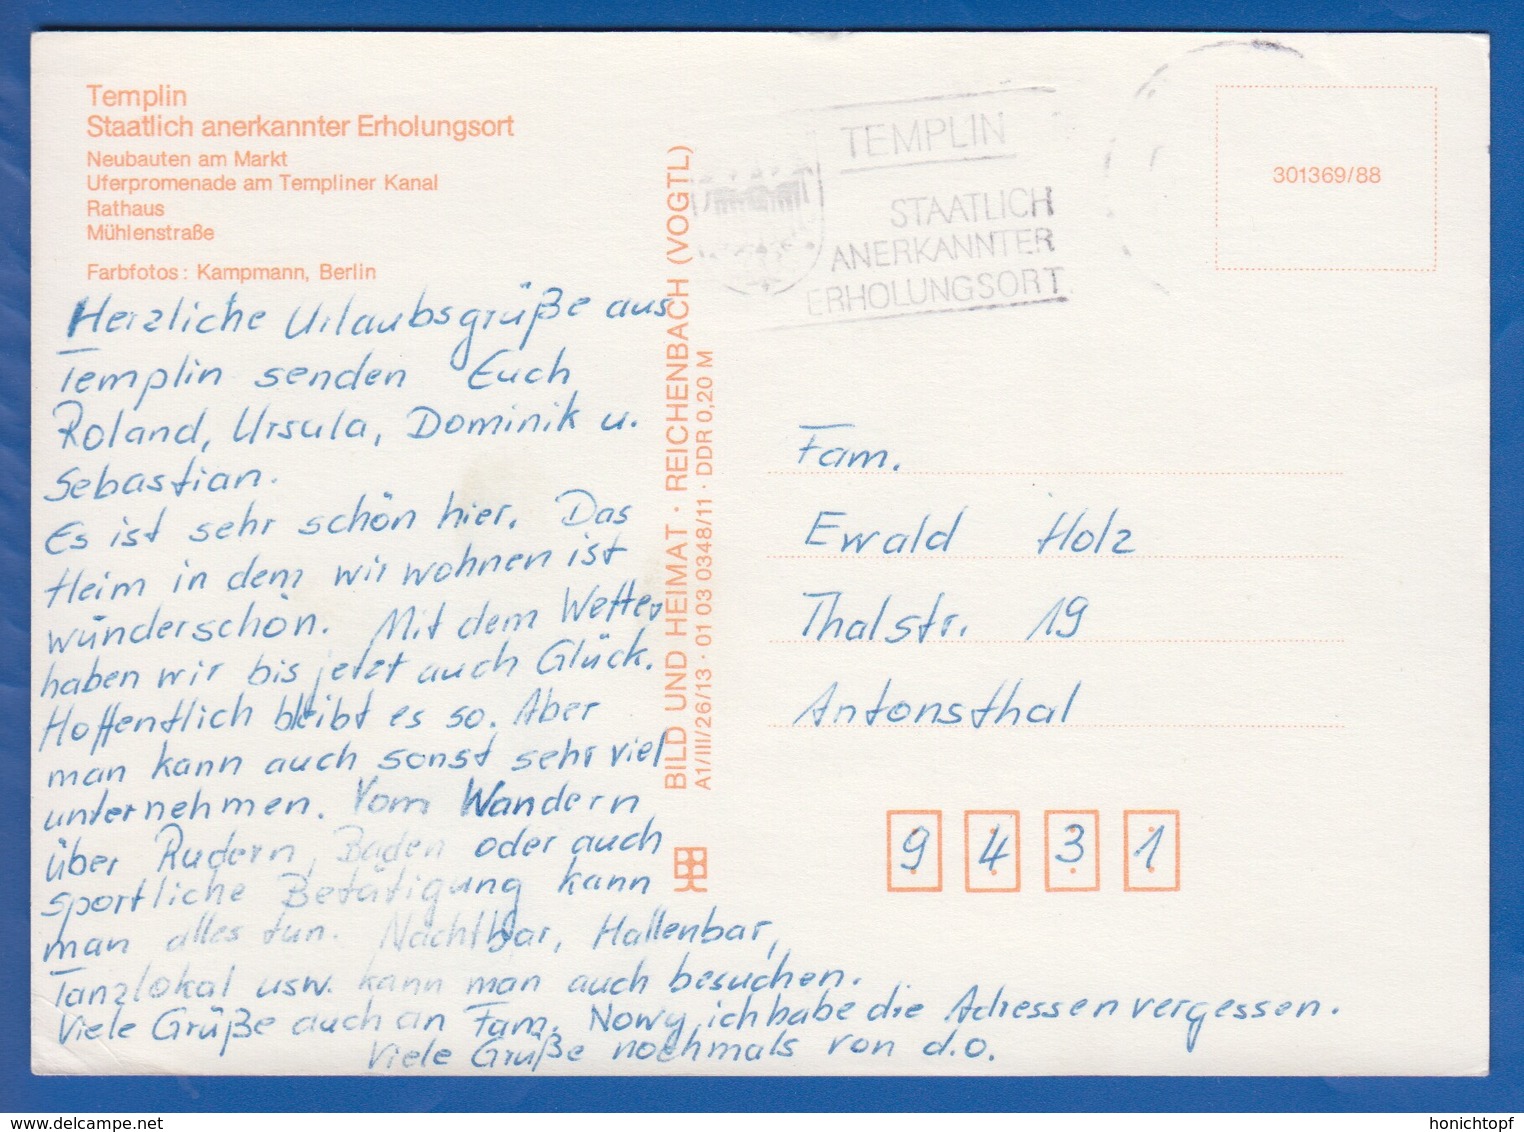 Templin
Staatlich anerkannter Erholungsort
Neubauten am Markt
Uferpromenade am Templiner Kanal
Rathaus
Mühlenstraße
Farbfotos: Kampmann, Berlin
Herzliche Urlaubsgrüße aus
Templin senden Euch
Roland, Ursula, Dominik u.
Sebastian.
Es ist sehr schön hier. Das
Heim in dem wir wohnen ist
wunderschön. Mit dem Wetter
haben wir bis jetzt auch Glück.
Hoffentlich bleibt es so. Aber
man kann auch sonst sehr viel
unternehmen. Vom Wandern
über Rudern, Baden oder auch
sportliche Betätigung kann
man alles tun. Nachtbar, Hallenbar,
Tanzlokal usw. kann man auch besuchen.
Viele Grüße auch an Fam. Nowy, ich habe die Adressen vergessen.
Viele Grüße nochmals von d.o.
BILD UND HEIMAT · REICHENBACH (VOGTL)
A1/III/26/13 · 01 03 0348/11 · DDR 0,20 M
TEMPLIN
STAATLICH
ANERKANNTER
ERHOLUNGSORT
301369/88
Fam.
Ewald Holz
Thalstr. 19
Antonsthal
9 4 3 1
www.delcampe.net
honichtopf